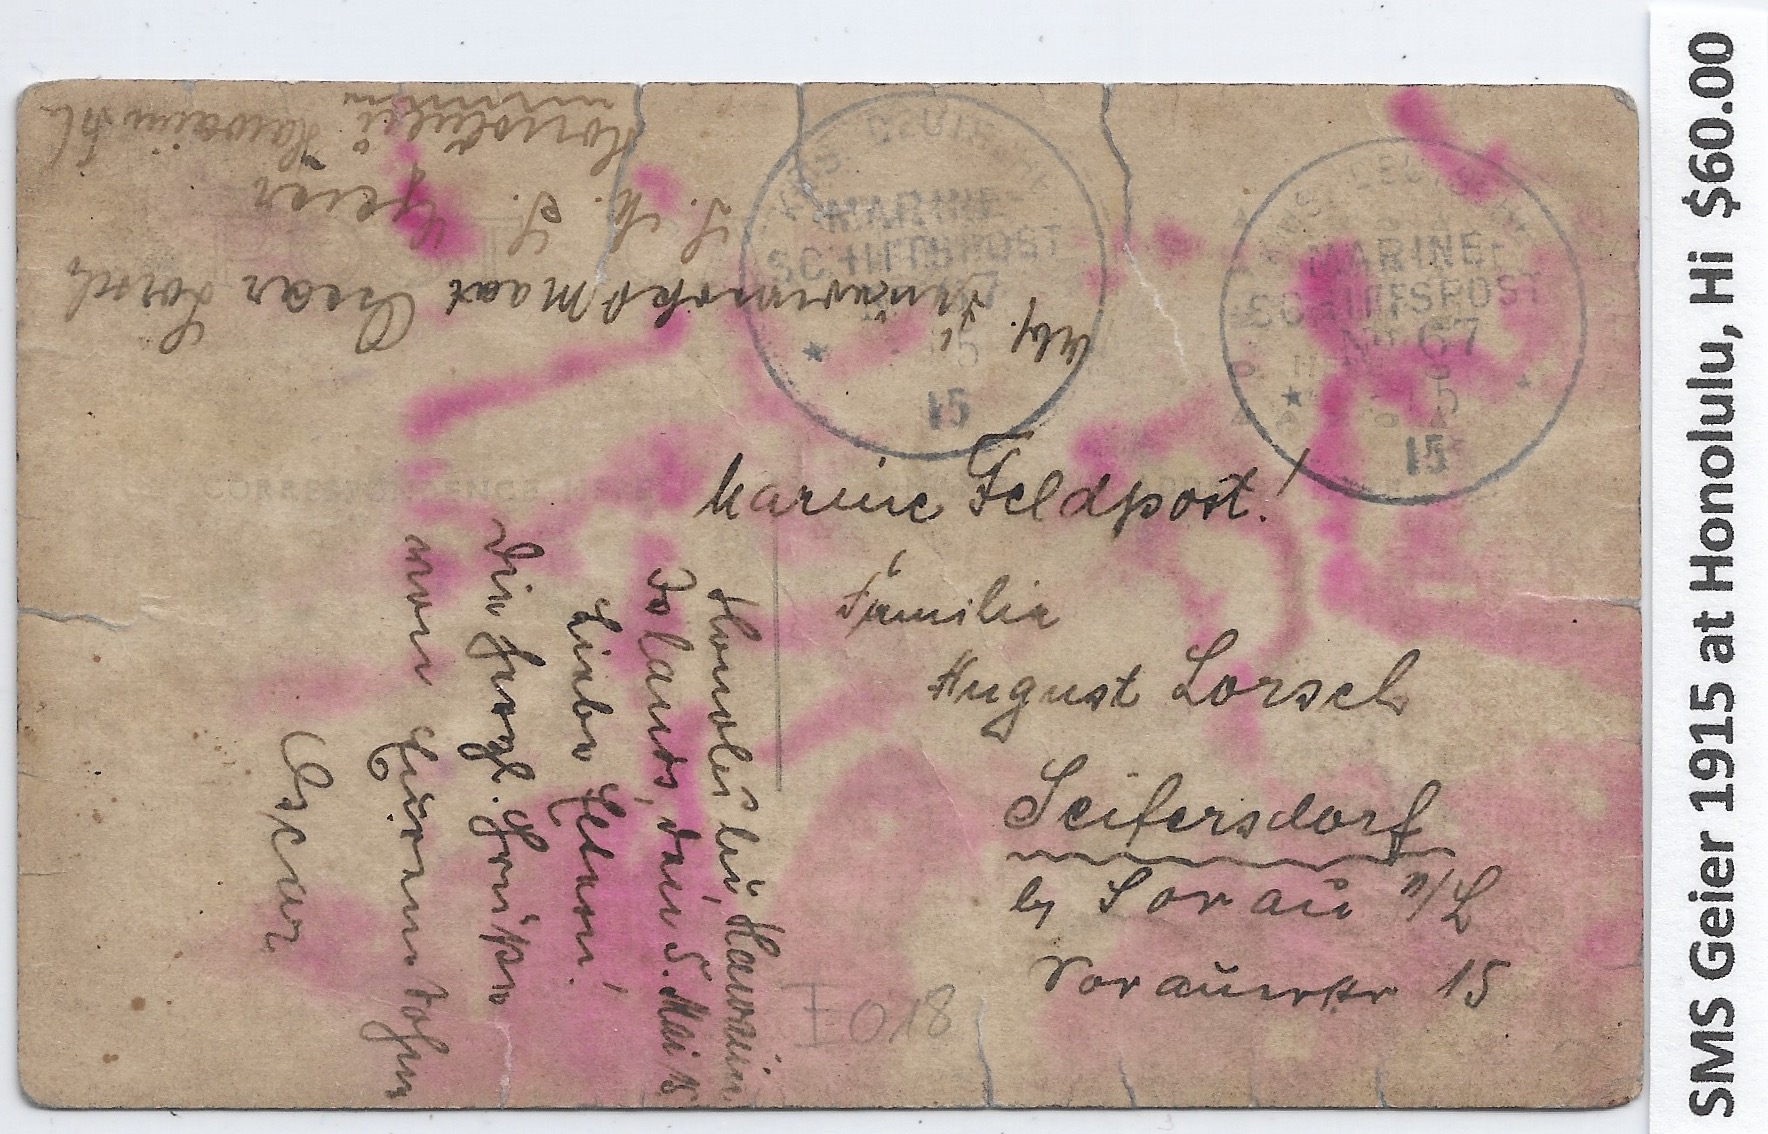 Honolulu Hawaiin Isl.
S. M. S. Geier
Abs. Funkentel. Ob. Maat Oscar Lorsch
MARINE-
SCHIFFSPOST
15
MARINE-
SCHIFFSPOST
No 67
15
CORRESPONDENCE HERE
Marine Feldpost!
Familie
August Lorsch
Seifersdorf
by Sorau N/L
Sorauerstr 15
Honolulu, Hawaiin
Islands, den 5. Mai 15
Liebe Eltern!
Die herzl. Grüße
von Eurem Sohn
Oscar
I 018
SMS Geier 1915 at Honolulu, Hi $60.00